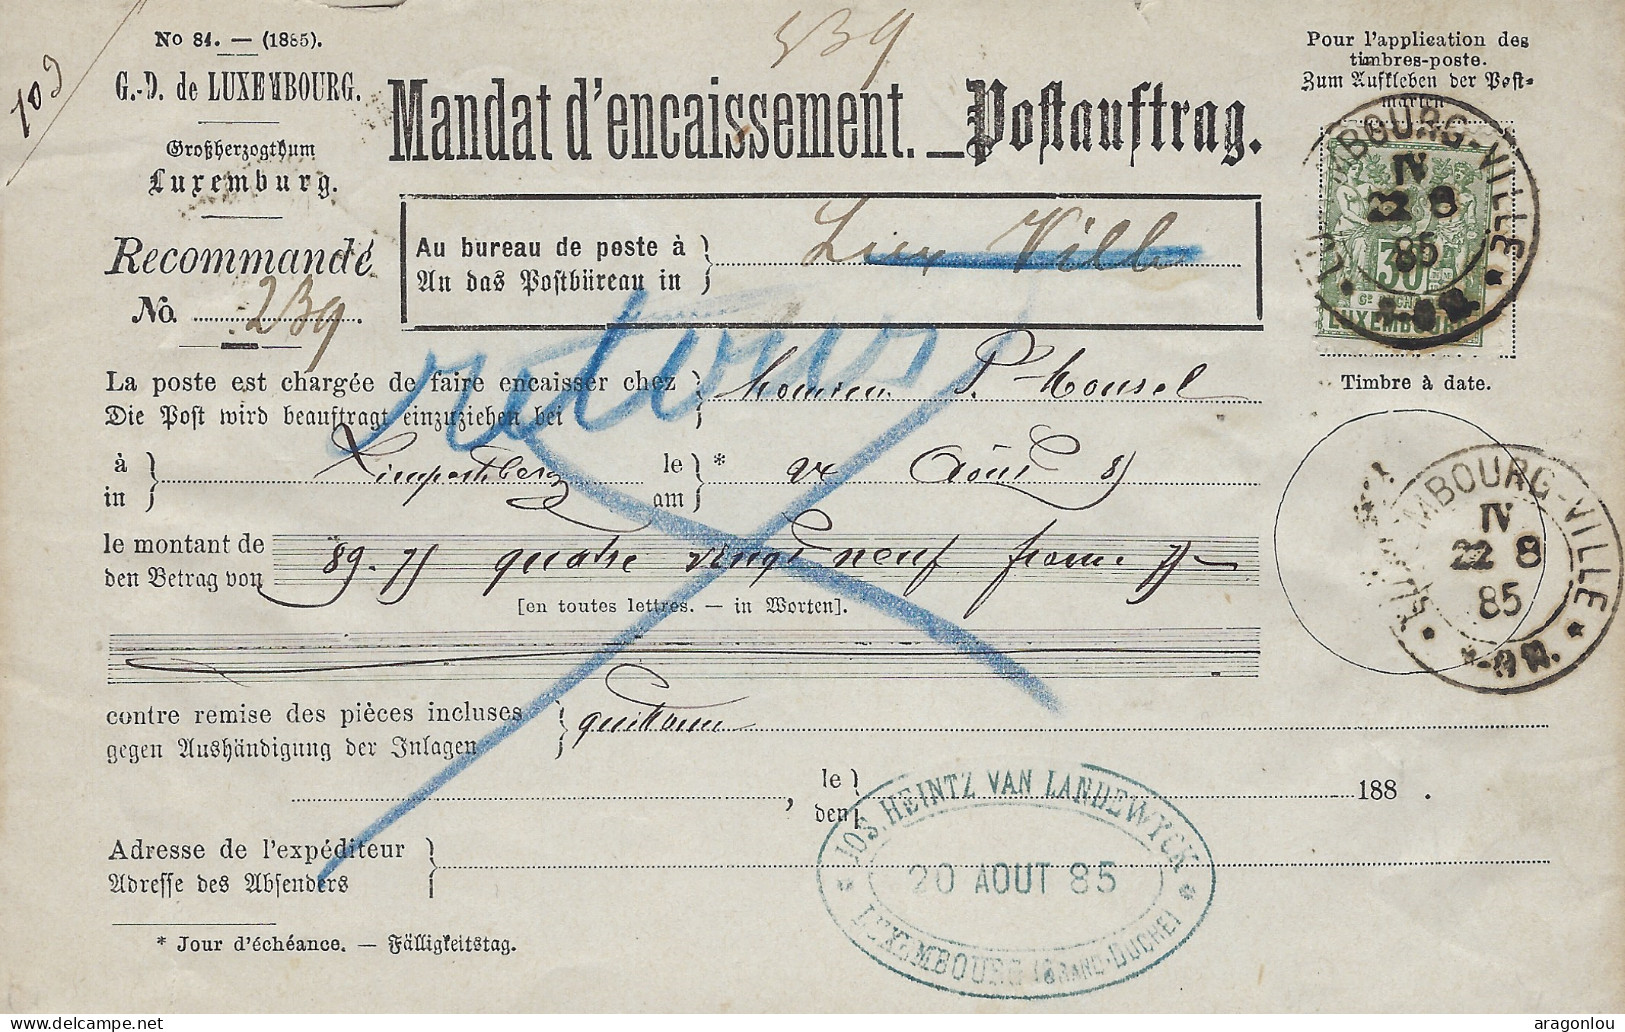 109
539
No 81. — (1885).
G.-D. de LUXEMBOURG.
Großherzogthum
Luxemburg.
Recommandé
No. 239.
Mandat d'encaissement. — Postauftrag.
Au bureau de poste à } Lux Ville
An das Postbüreau in
Pour l'application des
timbres-poste.
Zum Aufkleben der Post-
marken
LUXEMBOURG-VILLE
IV
22 8
85
30
LUXEMBOURG
retour
La poste est chargée de faire encaisser chez } Monsieur P. Mousel
Die Post wird beauftragt einzuziehen bei
à } Limpertsberg le } *
in am Août 85
Timbre à date.
MBOURG-VILLE
IV
22 8
85
le montant de 89.75 quatre vingt neuf francs 75
den Betrag von
[en toutes lettres. — in Worten].
contre remise des pièces incluses } quittance
gegen Aushändigung der Inlagen
, le } 188 .
den
Adresse de l'expéditeur }
Adresse des Absenders
* Jour d'échéance. — Fälligkeitstag.
JOS. HEINTZ VAN LANDEWYCK
20 AOUT 85
LUXEMBOURG (GRAND-DUCHÉ)
delcampe.net
aragonlou